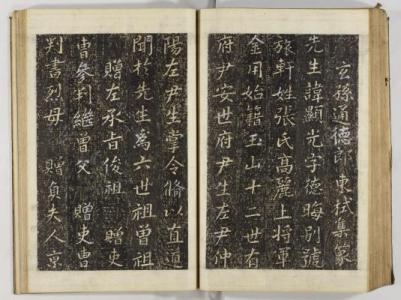 玄孫通德郎東栻集篆
先生諱顯光字德晦別號
旅軒姓張氏高麗上將軍
金用始籍玉山十二世有
府尹安世府尹生左尹仲
陽左尹生掌令脩以直道
聞於先生爲六世祖曾祖
贈左承旨俊祖 贈吏
曹參判繼曾父 贈吏曹
判書烈母 贈貞夫人京